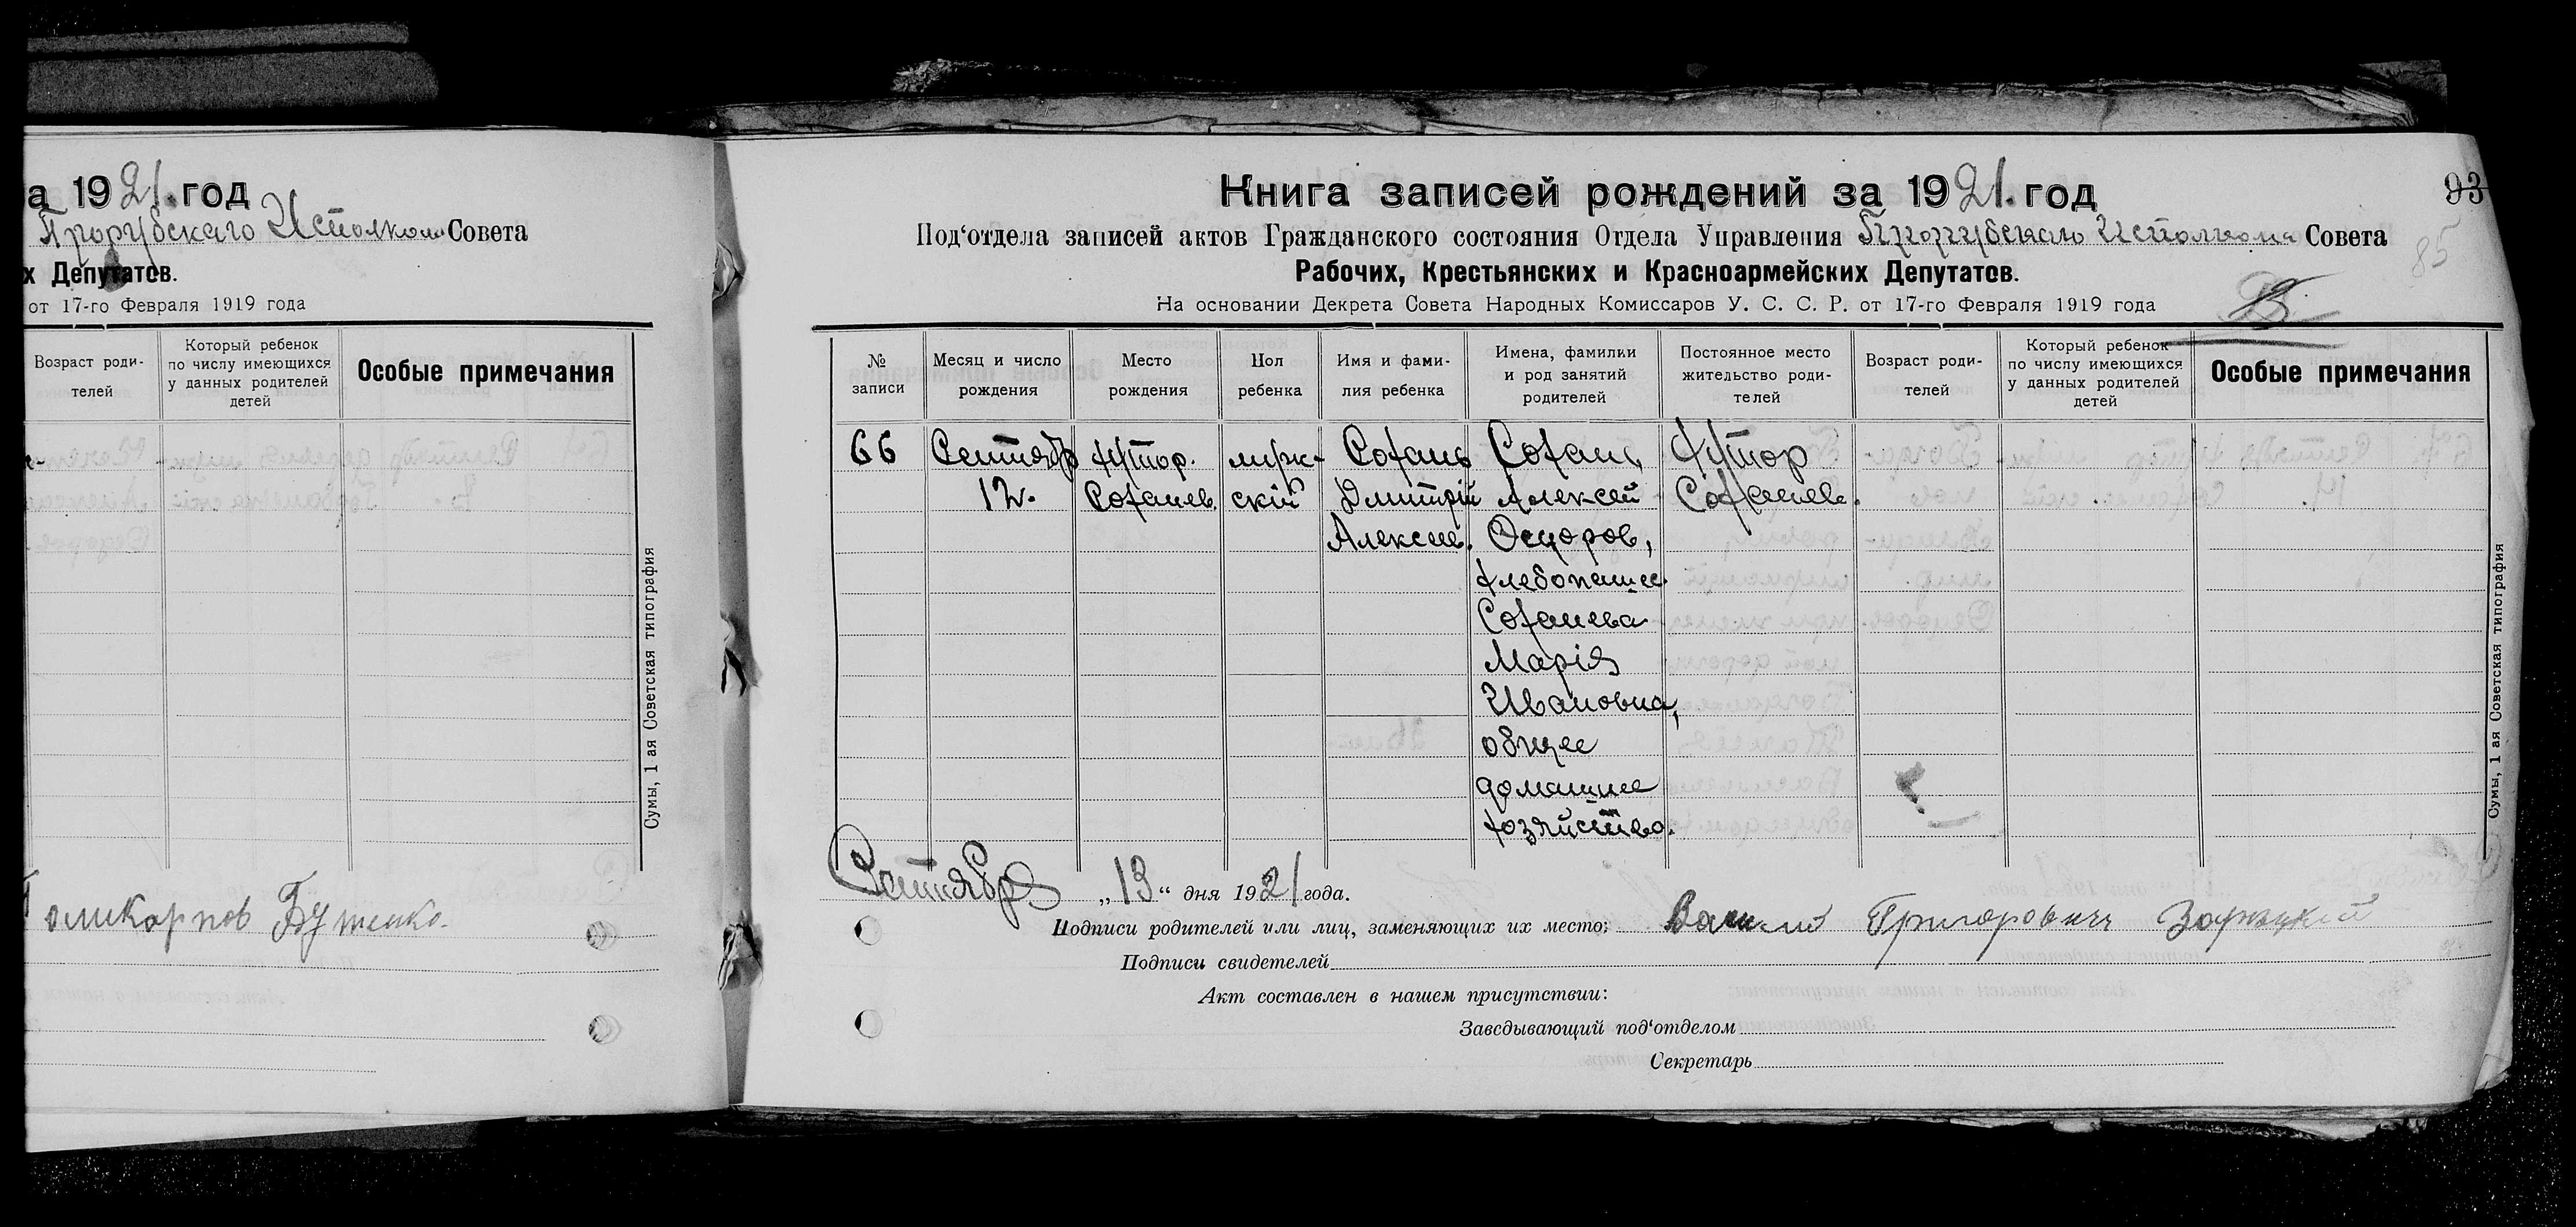 а 1921. год
Прорубскаго Исполкома Совета
х Депутатов.
от 17-го Февраля 1919 года
Возраст роди-
телей
Который ребенок
по числу имеющихся
у данных родителей
детей
Особые примечания
Сумы, 1 ая Советская типография
Поликарпов Бутенко.
Книга записей рождений за 1921. год
93
Под‘отдела записей актов Гражданского состояния Отдела Управления Прорубскаго Исполкома Совета
85
Рабочих, Крестьянских и Красноармейских Депутатов.
На основании Декрета Совета Народных Комиссаров У. С. С. Р. от 17-го Февраля 1919 года
№
записи
Месяц и число
рождения
Место
рождения
Пол
ребенка
Имя и фами-
лия ребенка
Имена, фамилии
и род занятий
родителей
Постоянное место
жительство роди-
телей
Возраст роди-
телей
Который ребенок
по числу имеющихся
у данных родителей
детей
Особые примечания
66 Сентябр хутор. мужс- Сохань Сохань, Хутор
12. Соханев. скій Дмитрій Алексей Соханева.
Алексеев. Федоров,
хлебопашес.
Соханева
Марія
Ивановна,
общее
домашнее
хозяйство.
Сумы, 1 ая Советская типография
Сентября „13“ дня 1921 года.
Подписи родителей или лиц, заменяющих их место: Василий Григорович
Подписи свидетелей
Акт составлен в нашем присутствии:
Заведывающий под‘отделом
Секретарь